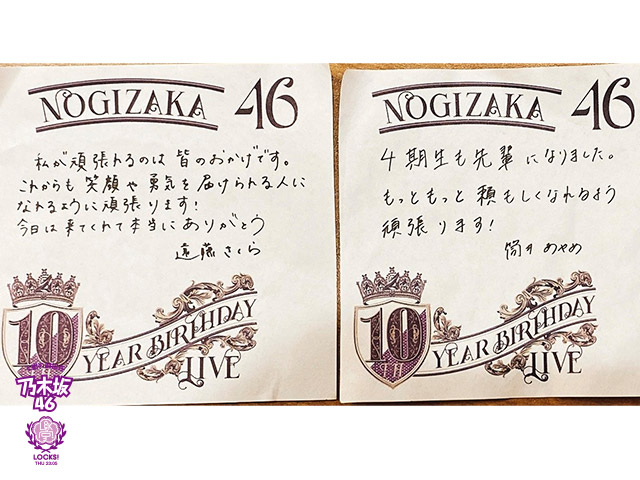 NOGIZAKA 46
私が頑張れるのは皆のおかげです。
これからも笑顔や勇気を届けられる人に
なれるように頑張ります!
今日は来てくれて本当にありがとう
遠藤さくら
10 YEAR BIRTHDAY
LIVE
NOGIZAKA 46
4期生も先輩になりました。
もっともっと頼もしくなれるよう
頑張ります!
筒井あやめ
10 YEAR BIRTHDAY
LIVE
乃木坂
46
LOCKS!
THU 23:08